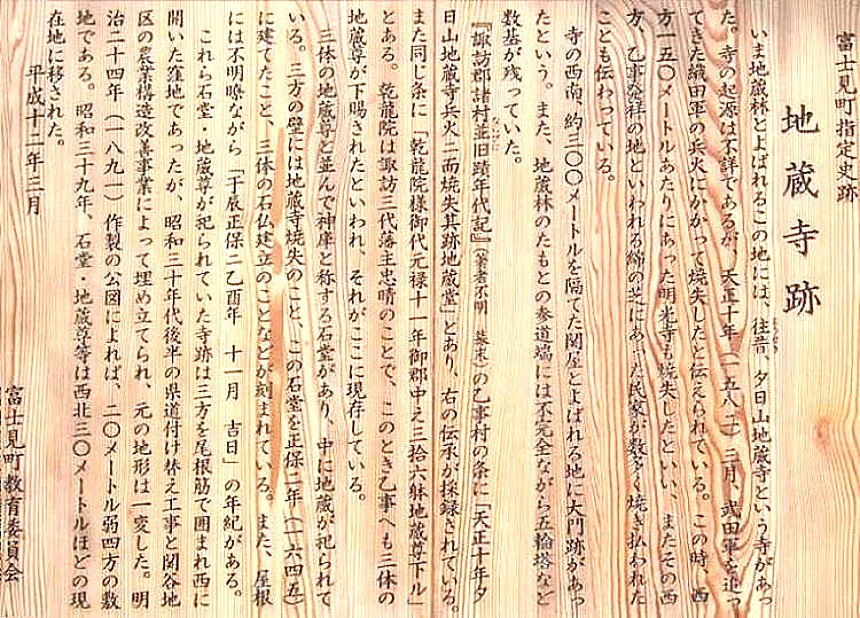 富士見町指定史跡
地蔵寺跡
いま地蔵林とよばれるこの地には、往昔、夕日山地蔵寺という寺があっ
た。寺の起源は不詳であるが、天正十年(一五八二)三月、武田軍を追っ
てきた織田軍の兵火にかかって焼失したと伝えられている。この時、西
方一五〇メートルあたりにあった明光寺も焼失したといい、またその西
方、乙事発祥の地といわれる綿の芝にあった民家が数多く焼き払われた
ことも伝わっている。
寺の西南、約三〇〇メートルを隔てた関屋とよばれる地に大門跡があっ
たという。また、地蔵林のたもとの参道端には不完全ながら五輪塔など
数基が残っていた。
『諏訪郡諸村並旧蹟年代記』(筆者不明 幕末)の乙事村の条に「天正十年夕
日山地蔵寺兵火ニ而焼失其跡地蔵堂」とあり、右の伝承が採録されている。
また同じ条に「乾龍院様御代元禄十一年御郡中え三拾六躰地蔵尊下ル」
とある。乾龍院は諏訪三代藩主忠晴のことで、このとき乙事へも三体の
地蔵尊が下賜されたといわれ、それがここに現存している。
三体の地蔵尊と並んで神庫と称する石堂があり、中に地蔵が祀られて
いる。三方の壁には地蔵寺焼失のこと、この石堂を正保二年(一六四五)
に建てたこと、三体の石仏建立のことなどが刻まれている。また、屋根
には不明瞭ながら「于辰正保二乙酉年 十一月 吉日」の年紀がある。
これら石堂・地蔵尊が祀られていた寺跡は三方を尾根筋で囲まれ西に
開いた窪地であったが、昭和三十年代後半の県道付け替え工事と関谷地
区の農業構造改善事業によって埋め立てられ、元の地形は一変した。明
治二十四年(一八九一)作製の公図によれば、二〇メートル弱四方の敷
地である。昭和三十九年、石堂・地蔵尊等は西北三〇メートルほどの現
在地に移された。
平成十二年三月
富士見町教育委員会